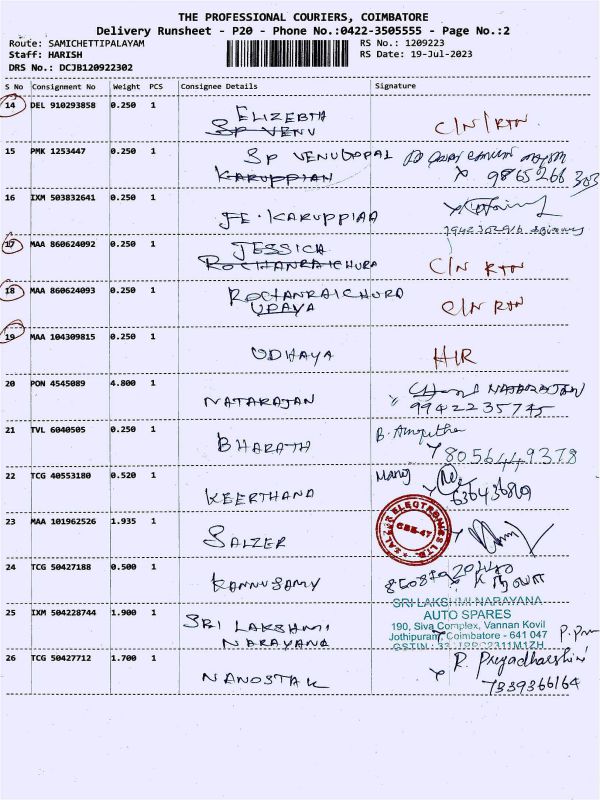 THE PROFESSIONAL COURIERS, COIMBATORE
Delivery Runsheet - P20 - Phone No.:0422-3505555 - Page No.:2
Route: SAMICHETTIPALAYAM RS No.: 1209223
Staff: HARISH RS Date: 19-Jul-2023
DRS No.: DCJB120922302
S No Consignment No Weight PCS Consignee Details Signature
14 DEL 910293858 0.250 1 ELIZEBTH C/N/RTN
SP VENU
15 PMK 1253447 0.250 1 SP VENUGOPAL
KARUPPIAN 9865266 303
16 IXM 503832641 0.250 1 JE. KARUPPIAA
17 MAA 860624092 0.250 1 JESSICA
ROCHANRAICHURA C/N RTN
18 MAA 860624093 0.250 1 ROCHANRAICHURA C/N RTN
UDAYA
19 MAA 104309815 0.250 1 UDHAYA H/R
20 PON 4545089 4.800 1 NATARAJAN NATARAJAN
9942235745
21 TVL 6040505 0.250 1 BHARATH B. Amrutha
8056449378
22 TCG 40553180 0.520 1 KEERTHANA Manoj
23 MAA 101962526 1.935 1 SALZER
SALZER ELECTRONICS LTD.
CBE-47
24 TCG 50427188 0.500 1 KANNUSAMY
25 IXM 504228744 1.900 1 SRI LAKSHMI NARAYANA
SRI LAKSHMI NARAYANA
AUTO SPARES
190, Siva Complex, Vannan Kovil
Jothipuram, Coimbatore - 641 047
26 TCG 50427712 1.700 1 NANOSTAK R. Preyadharshini
7339366164